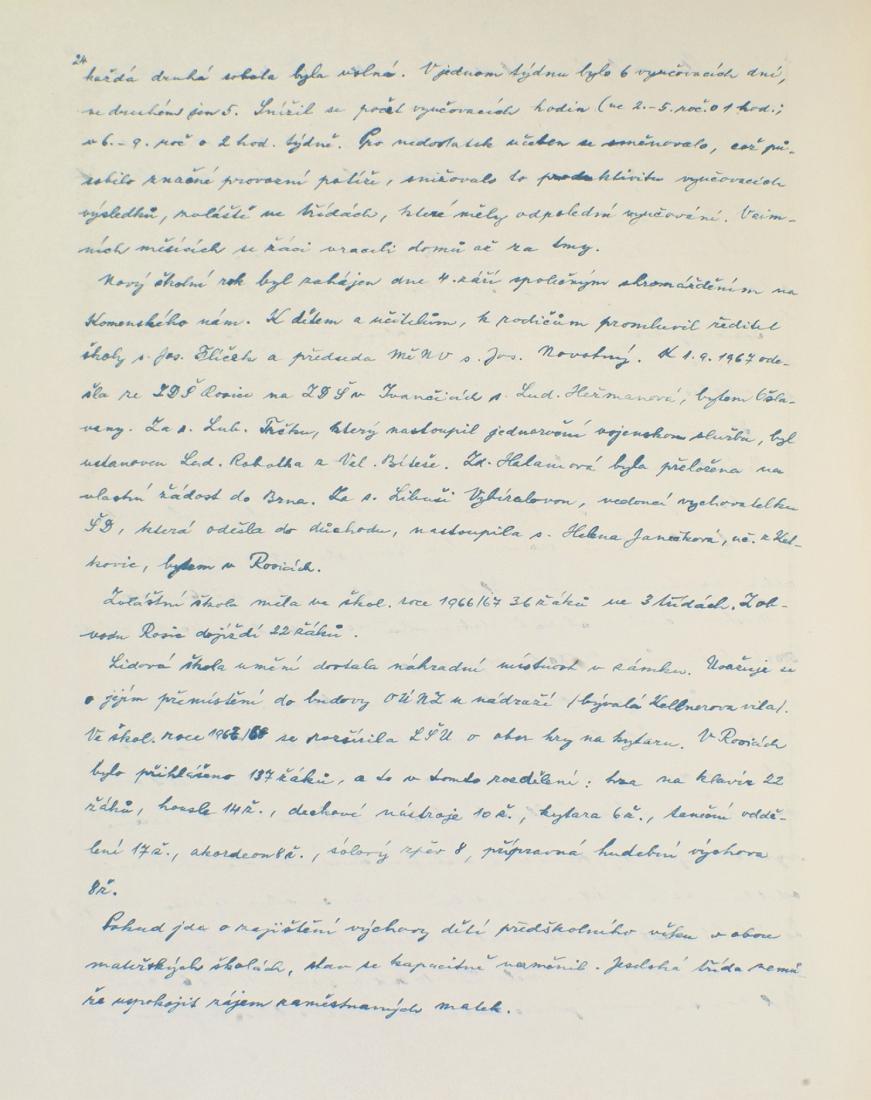 24
každá druhá sobota byla volná. V jednom týdnu bylo 6 vyučovacích dní,
ve druhém jen 5. Snížil se počet vyučovacích hodin (ve 2.-5. roč. o 1 hod.;
v 6.-9. roč o 2 hod. týdně. Pro nedostatek učeben se směnovalo, což pů-
sobilo značné provozní potíže, snižovalo to produktivitu vyučovacích
výsledků, zvláště ve třídách, které měly odpolední vyučování. V zim-
ních měsících se žáci vraceli domů až za tmy.
Nový školní rok byl zahájen dne 4. září společným shromážděním na
Komenského nám. K dětem a učitelům, k rodičům promluvil ředitel
školy s. Jos. Flíček a předseda MěNV s. Jos. Novotný. K 1.9.1967 ode-
šla ze ZDŠ Rosice na ZDŠ v Ivančicích s. Lud. Heřmanová, bytem Osla-
vany. Za s. Lub. Trčku, který nastoupil jednoroční vojenskou službu, byl
ustanoven Lad. Robotka z Vel. Bíteše. Zd. Halamová byla přeložena na
vlastní žádost do Brna. Za s. Libuši Vybíralovou, vedoucí vychovatelku
ŠD, která odešla do důchodu, nastoupila s. Helena Janečková, uč. z Zet-
kovic, bytem v Rosicích.
Zvláštní škola měla ve škol. roce 1966/67 36 žáků ve 3 třídách. Z ob-
vodu Rosic dojíždí 22 žáků.
Lidová škola umění dostala náhradní místnost v zámku. Uvažuje se
o jejím přemístění do budovy OÚNZ u nádraží /bývalá Kellnerova vila/.
Ve škol. roce 1967/68 se rozšířila LŠU o obor hry na kytaru. V Rosicích
bylo přihlášeno 137 žáků, a to v tomto rozdělení: hra na klavír 22
žáků, housle 14 ž., dechové nástroje 10 ž., kytara 6 ž., taneční oddě-
lení 17 ž., akordeon 8 ž., sólový zpěv 8, přípravná hudební výchova
8 ž.
Pokud jde o zajištění výchovy dětí předškolního věku v obou
mateřských školách, stav se kapacitně nezměnil. Jeselská třída nemů-
že uspokojit zájem zaměstnaných matek.